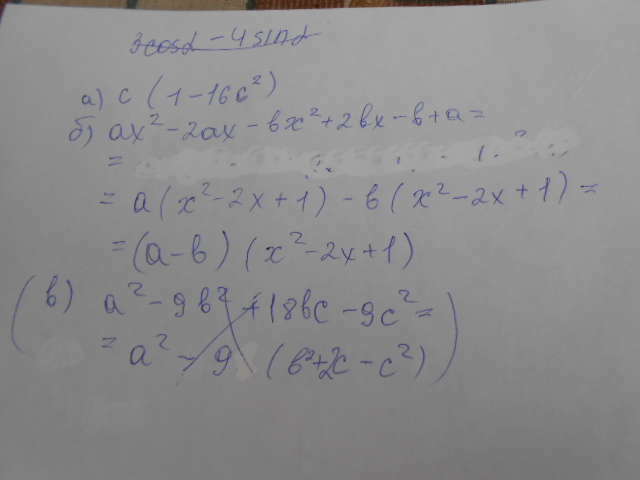 3cosα - 4sinα
а) c (1-16c²)
б) ax² - 2ax - bx² + 2bx - b + a =
=
= a (x² - 2x + 1) - b (x² - 2x + 1) =
= (a - b) (x² - 2x + 1)
в) a² - 9b² + 18bc - 9c² =
= a² - 9 (b² + 2c - c²)